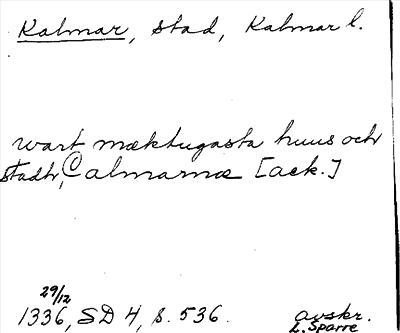 Kalmar, stad, Kalmar l.
wart mæktugasta huus och
stadh, Calmarnæ [ack.]
29/12
1336, SD 4, s. 536.
avskr.
L. Sparre